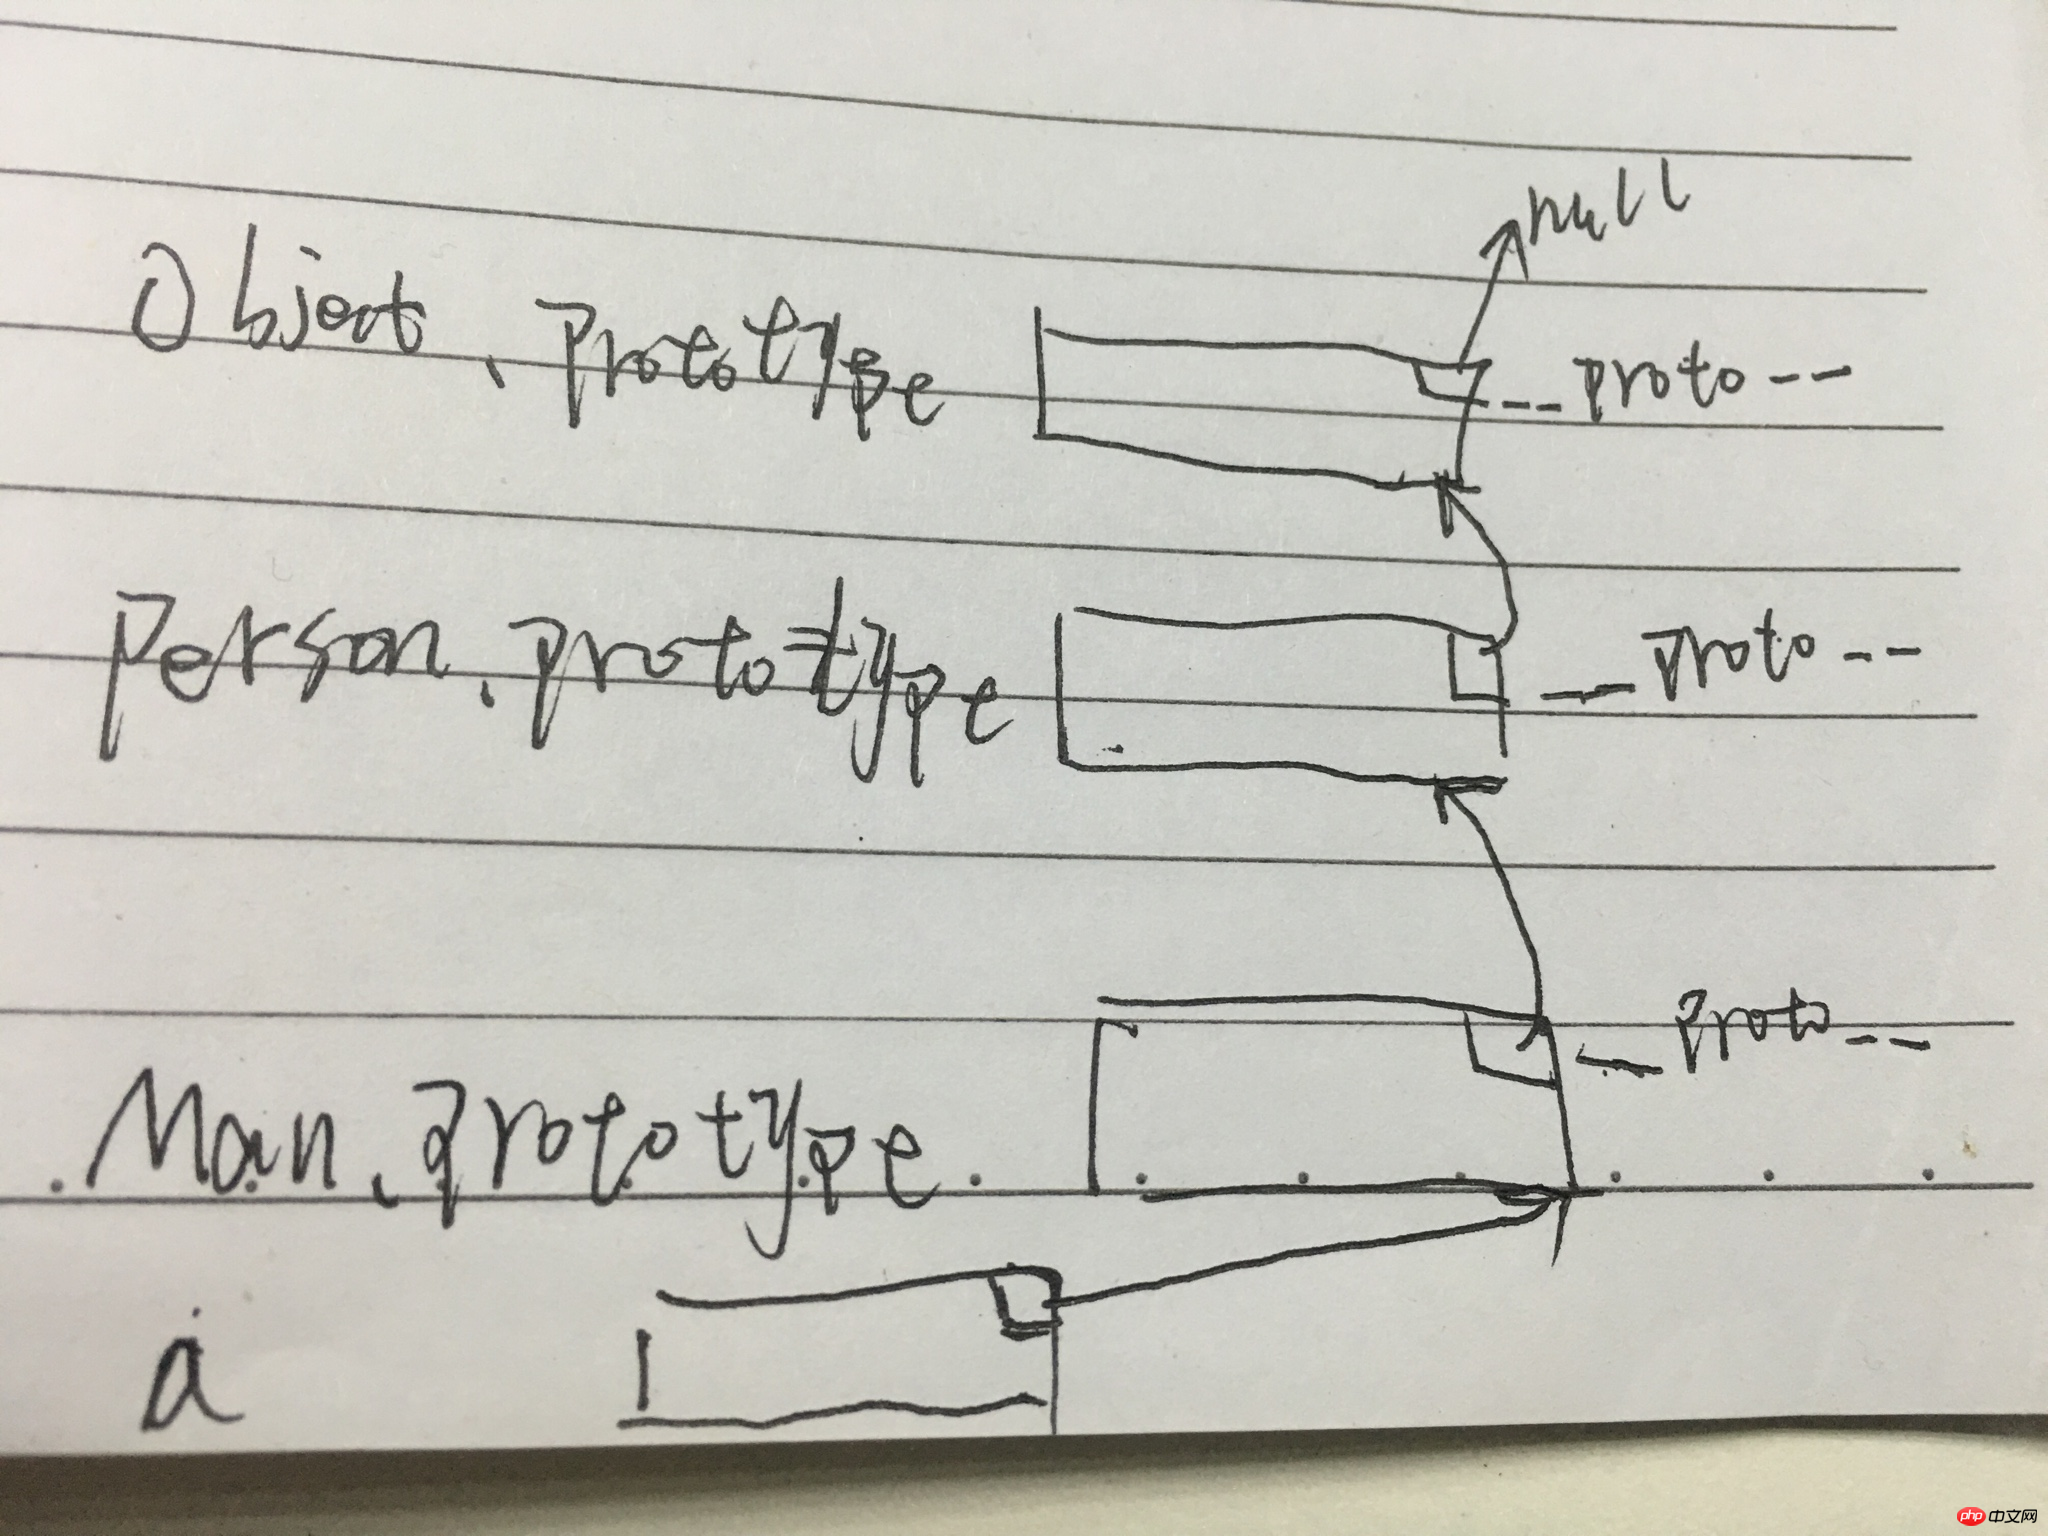 null
Object.prototype
__proto--
person.prototype
__proto--
__proto--
Man.prototype
a
php中文网